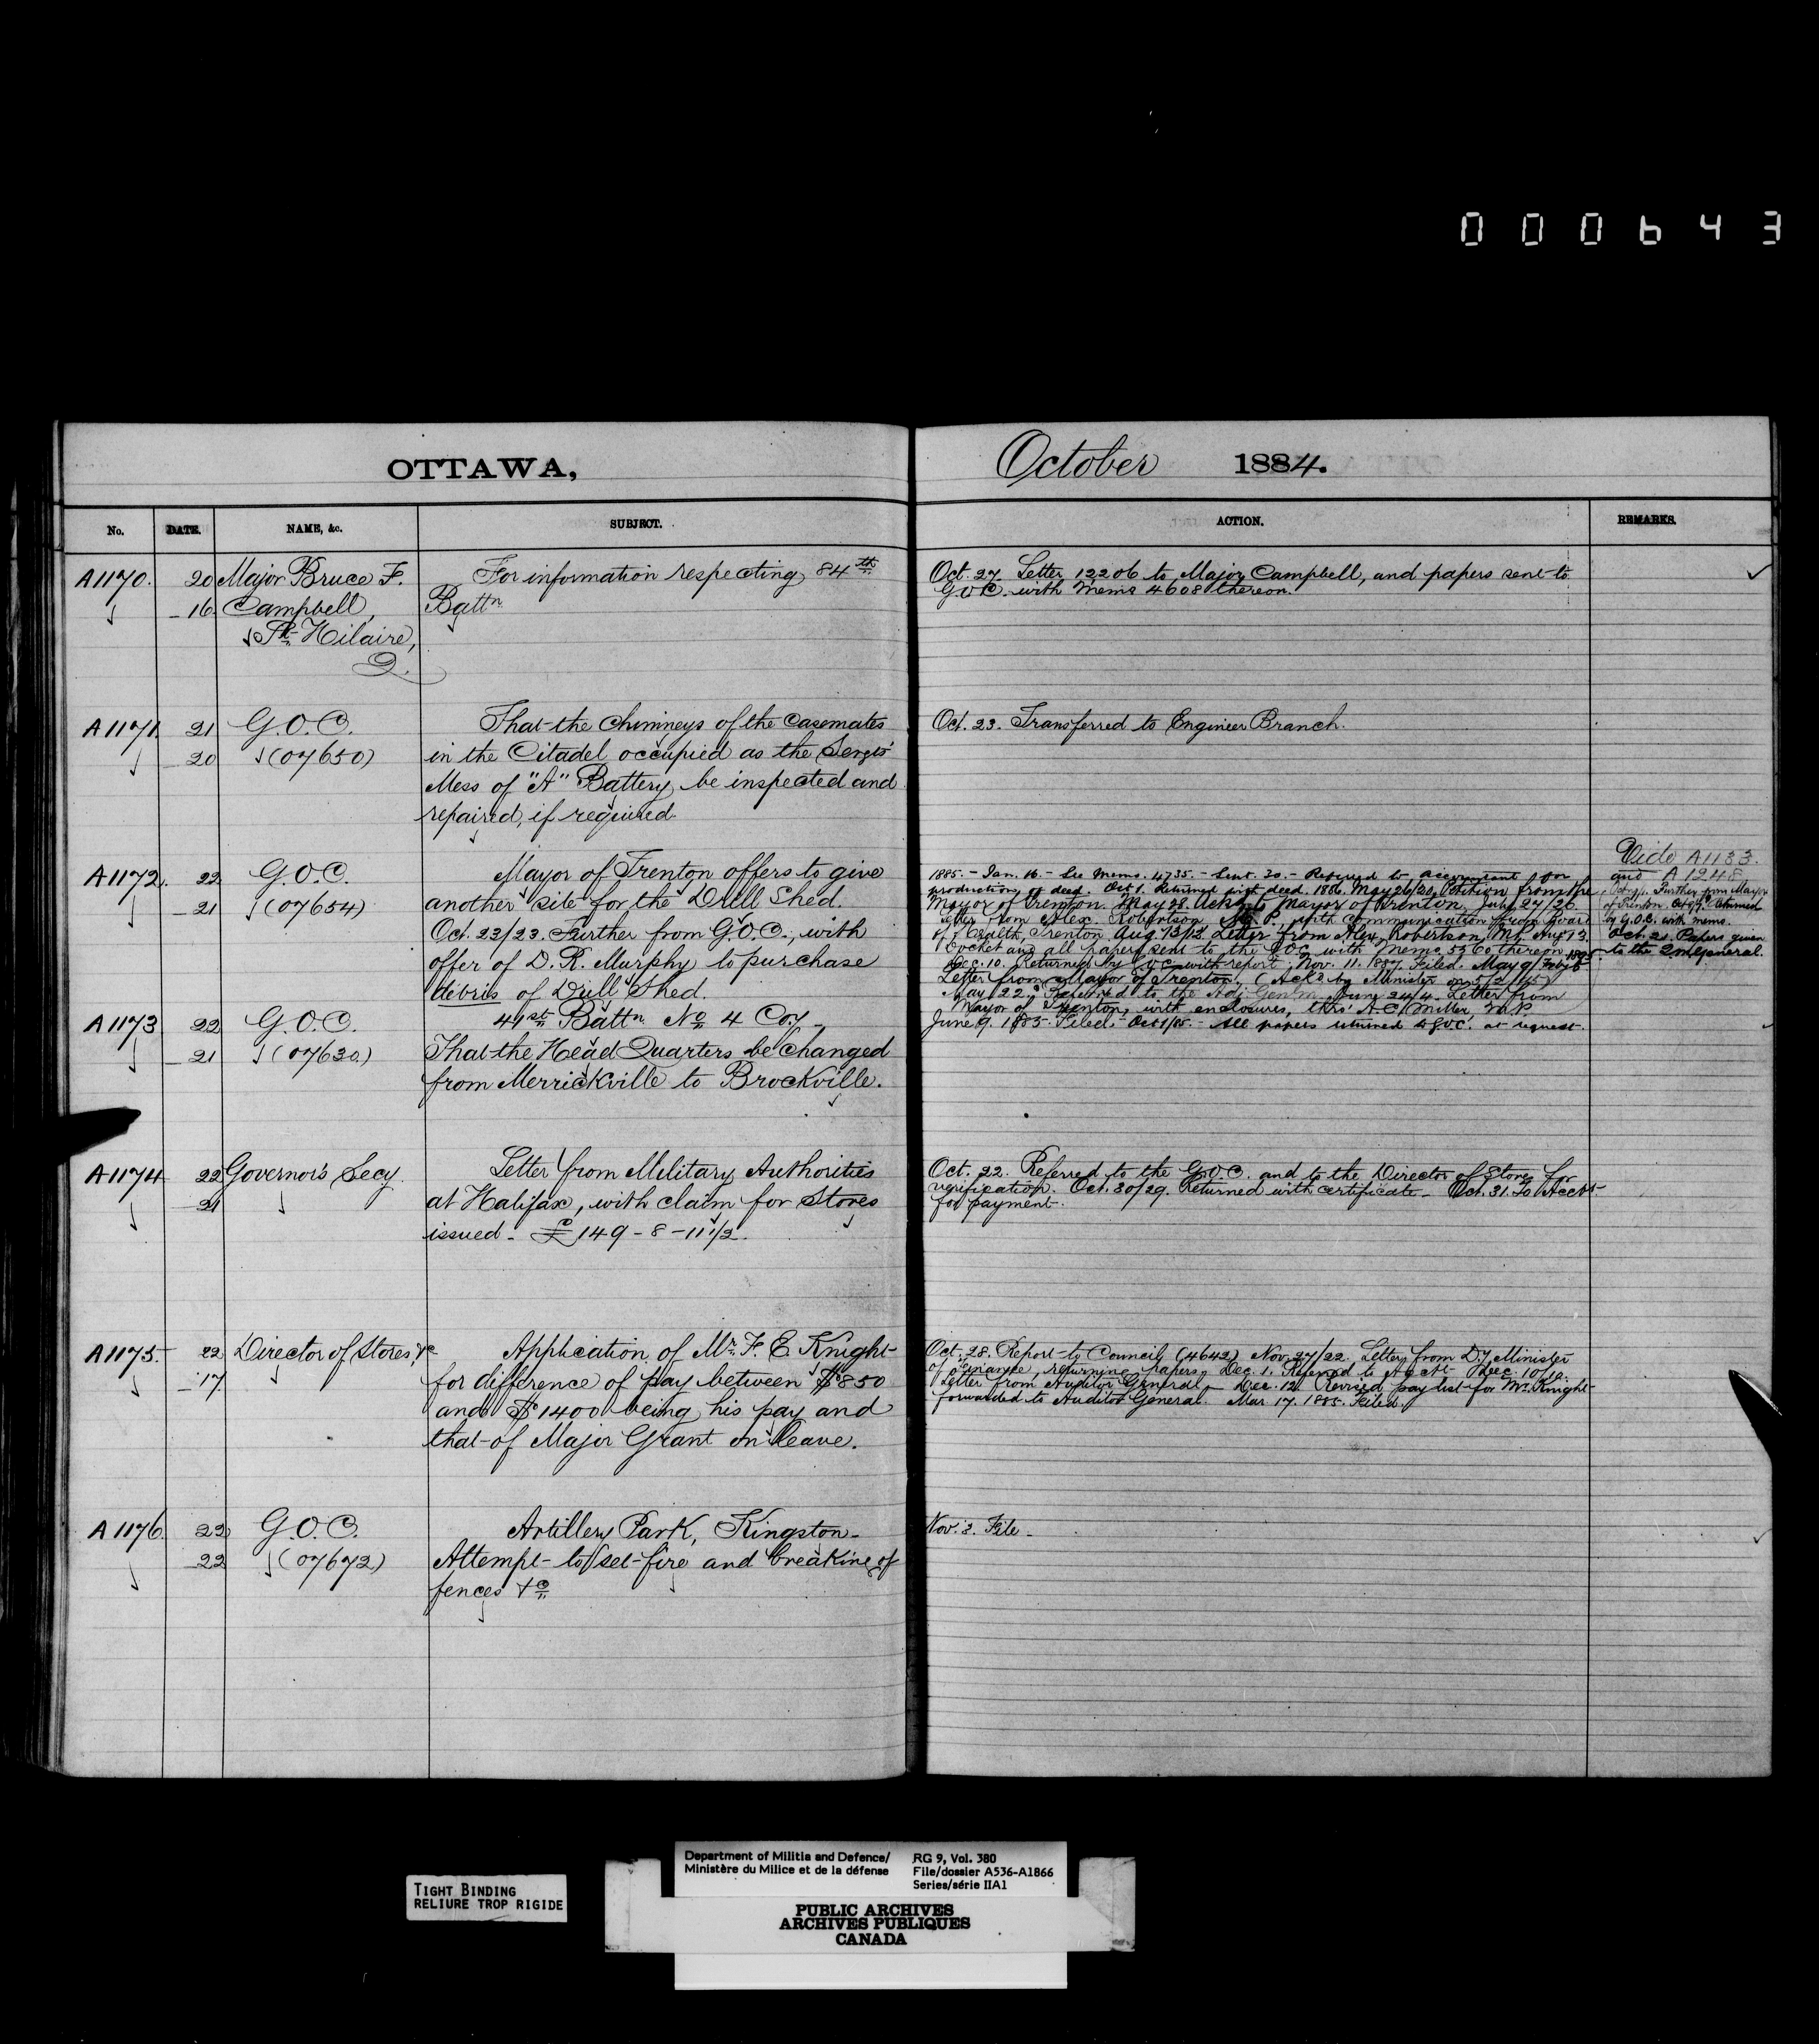 000643
OTTAWA,
October 1884.
No. DATE. NAME, &c. SUBJECT. ACTION. REMARKS.
A1170. 20 Major Bruce F. For information respecting 84th
16 Campbell, Battn
St. Hilaire,
Q.
Oct. 27. Letter 12206 to Major Campbell, and papers sent to
G.O.C. with Memo 4608 thereon.
A1171 21 G.O.C. That the Chimneys of the Casemates
20 (07650) in the Citadel occupied as the Sergts'
Mess of "A" Battery be inspected and
repaired, if required.
Oct. 23. Transferred to Engineer Branch.
A1172. 22 G.O.C. Mayor of Trenton offers to give
21 (07654) another site for the Drill Shed.
Oct. 23/23. Further from G.O.C., with
offer of D. R. Murphy to purchase
débris of Drill Shed.
1885. - Jan. 16. - See Memo. 4735. - Sept. 30. - Referred to Accountant for
production of deed. Oct 1. Returned with deed. 1886. May 26/20, Petition from the
Mayor of Trenton. May 28. Ackd to Mayor of Trenton, July 27/26
Letter from Alex. Robertson M.P. with communication from Board
of Health, Trenton Aug. 13/12 Letter from Alex. Robertson, MP, Aug 13.
Docket and all papers sent to the GOC with Memo 5560 thereon
Dec. 10. Returned by GOC with report, Nov. 11. 1887. Filed. May 9/ 1895
Letter from Mayor of Trenton, (Ackd by Minister on
May 22, Referred to the Adj. Genl. June 24/4. Letter from
Mayor of Trenton, with enclosures, thro' A.C. Miller, M.P.
June 9. 1885. Filed. - Oct 1/85. - All papers returned to GOC. at request.
Vide A1133.
and A1248
Further from Mayor
of Trenton Oct 9/9. Returned
by G.O.C. with memo.
Oct. 21. Papers given
to the QMGeneral.
A1173 22 G.O.C. 41st Battn No 4 Coy -
21 (07630) That the Head Quarters be changed
from Merrickville to Brockville.
A1174 22 Governor's Secy. Letter from Military Authorities
21 at Halifax, with claim for Stores
issued - £149-8-11 1/2.
Oct. 22. Referred to the G.O.C. and to the Director of Stores for
verification. Oct. 30/29. Returned with certificate - Oct. 31. To Acct
for payment.
A1175. 22 Director of Stores &c Application of Mr. F. E. Knight
17 for difference of pay between $850
and $1400 being his pay and
that of Major Grant on leave.
Oct. 28. Report to Council (4642) Nov. 27/22. Letter from Dy Minister
of Finance, returning papers. Dec. 1. Referred to Acct. Dec. 10/10.
Letter from Auditor General - Dec. 12. Revised pay list for Mr. Knight
forwarded to Auditor General. Mar. 17. 1885. Filed.
A1176. 22 G.O.C. Artillery Park, Kingston -
22 (07672) Attempt to set fire and breaking of
fences &c
Nov. 3. File -
TIGHT BINDING
RELIURE TROP RIGIDE
Department of Militia and Defence/
Ministère du Milice et de la défense
RG 9, Vol. 380
File/dossier A536-A1866
Series/série IIA1
PUBLIC ARCHIVES
ARCHIVES PUBLIQUES
CANADA